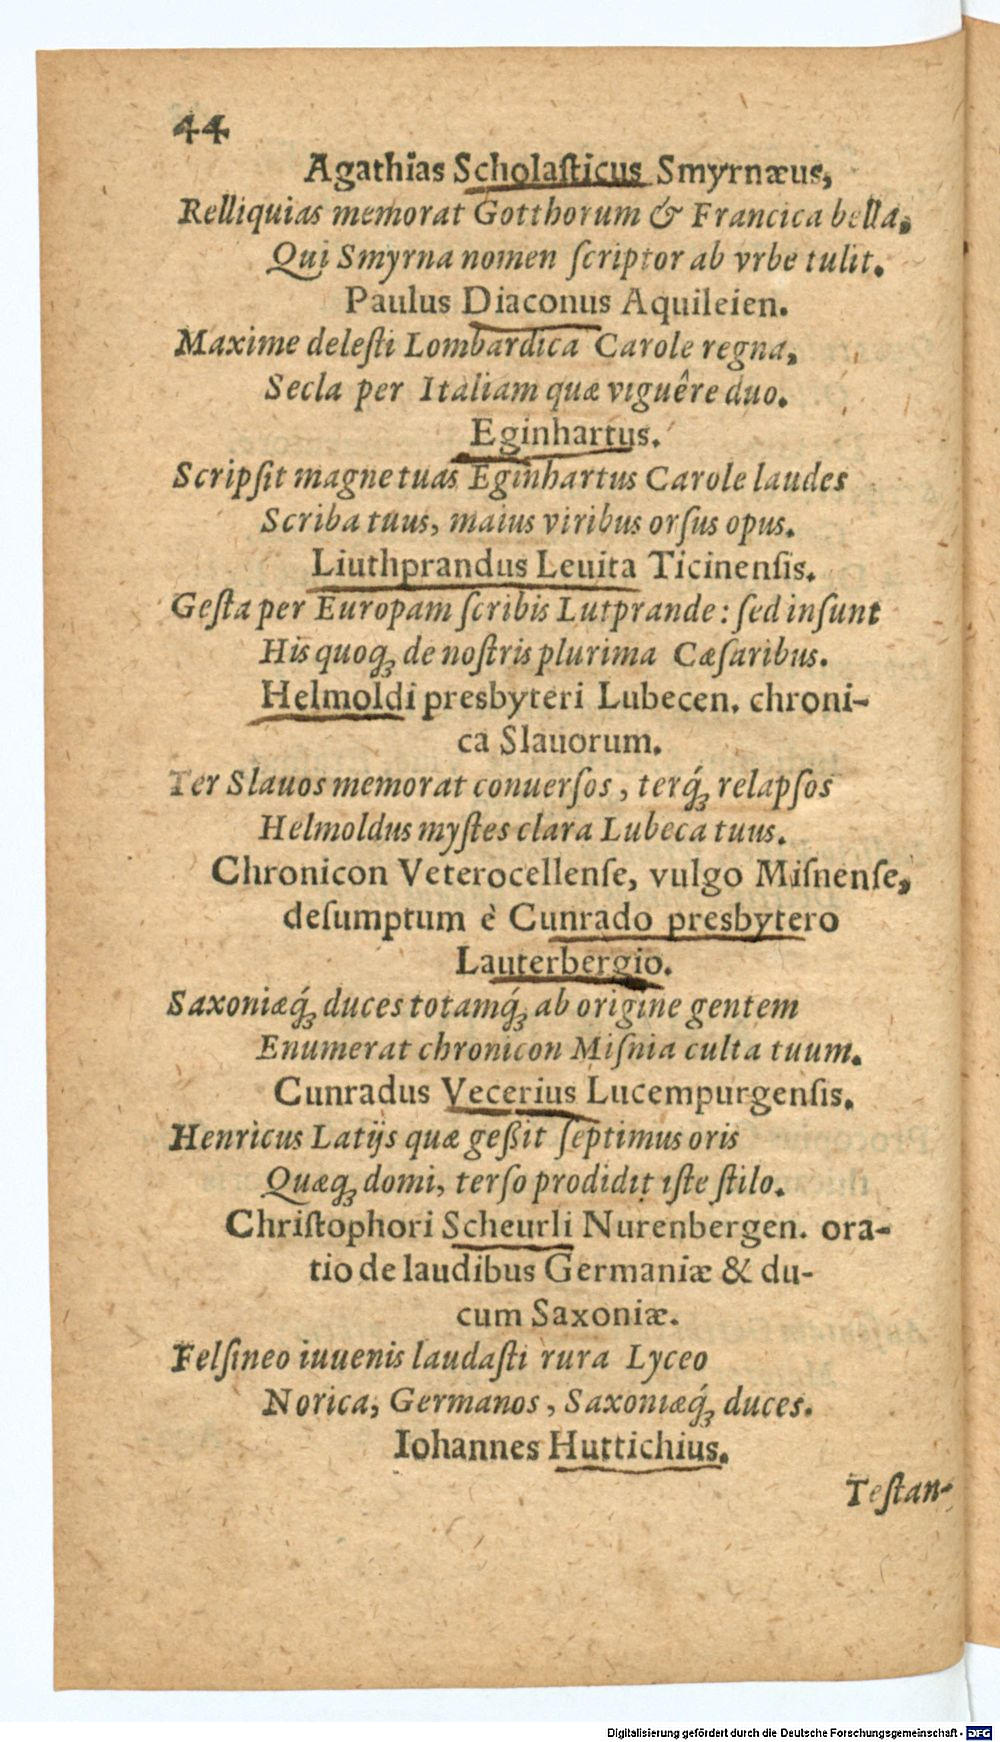 44
Agathias Scholaſticus Smyrnæus,
Relliquias memorat Gotthorum & Francica bella,
Qui Smyrna nomen ſcriptor ab vrbe tulit.
Paulus Diaconus Aquileien.
Maxime deleſti Lombardica Carole regna,
Secla per Italiam quæ viguêre duo.
Eginhartus.
Scripſit magne tuas Eginhartus Carole laudes
Scriba tuus, maius viribus orſus opus.
Liuthprandus Leuita Ticinenſis.
Geſta per Europam ſcribis Lutprande: ſed inſunt
His quoq; de noſtris plurima Cæſaribus.
Helmoldi presbyteri Lubecen. chroni-
ca Slauorum.
Ter Slauos memorat conuerſos, terq́; relapſos
Helmoldus myſtes clara Lubeca tuus.
Chronicon Veterocellenſe, vulgo Miſnenſe,
deſumptum è Cunrado presbytero
Lauterbergio.
Saxoniæq́; duces totamq́; ab origine gentem
Enumerat chronicon Miſnia culta tuum.
Cunradus Vecerius Lucempurgenſis.
Henricus Latijs quæ geßit ſeptimus oris
Quæq; domi, terſo prodidit iſte ſtilo.
Chriſtophori Scheurli Nurenbergen. ora-
tio de laudibus Germaniæ & du-
cum Saxoniæ.
Felſineo iuuenis laudaſti rura Lyceo
Norica, Germanos, Saxoniæq́; duces.
Iohannes Huttichius.
Teſtan-
Digitalisierung gefördert durch die Deutsche Forschungsgemeinschaft - DFG